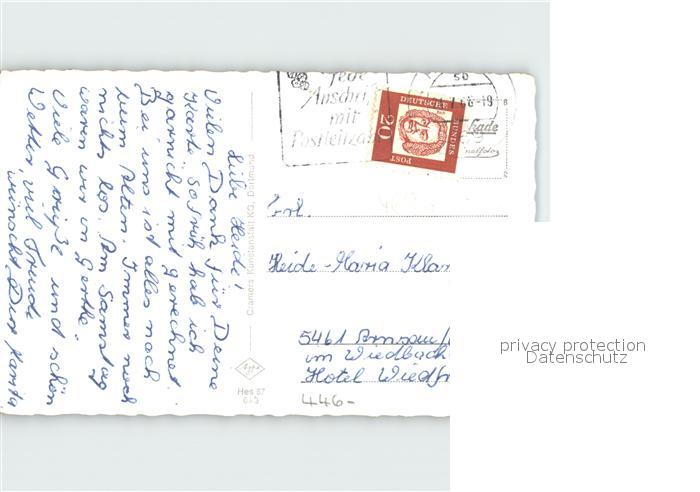 Liebe Heide!
Vielen Dank für Deine
Karte. So früh hab ich
garnicht mit gerechnet.
Bei uns ist alles nach
zum Alten. Immer noch
nichts los. Am Samstag
waren wir in Gerthe.
Viele Grüße und schön
Wetter, viel Freude
wünscht Dir Marita
Cramers Kunstanstalt KG, Dortmund
Hes 67
jede
Anschrift
mit
Postleitzahl
50
66-19
DEUTSCHE
BUNDES
POST
20
Frl.
Heide-Maria Klar
5461 Arnsau/
im Wiedbach
Hotel Wiedfr
446-
privacy protection
Datenschutz